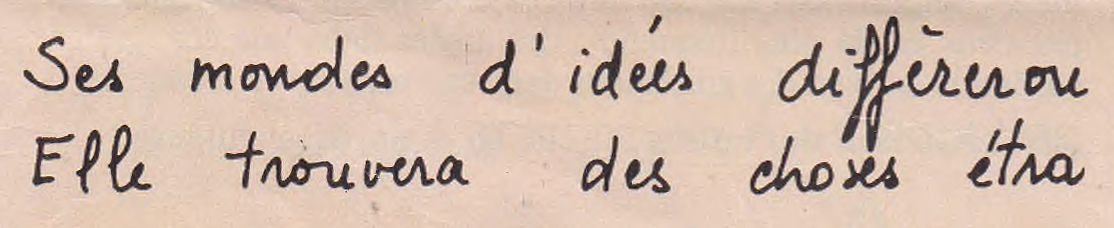 Ses mondes d'idées diffèrerou
Elle trouvera des choses étra